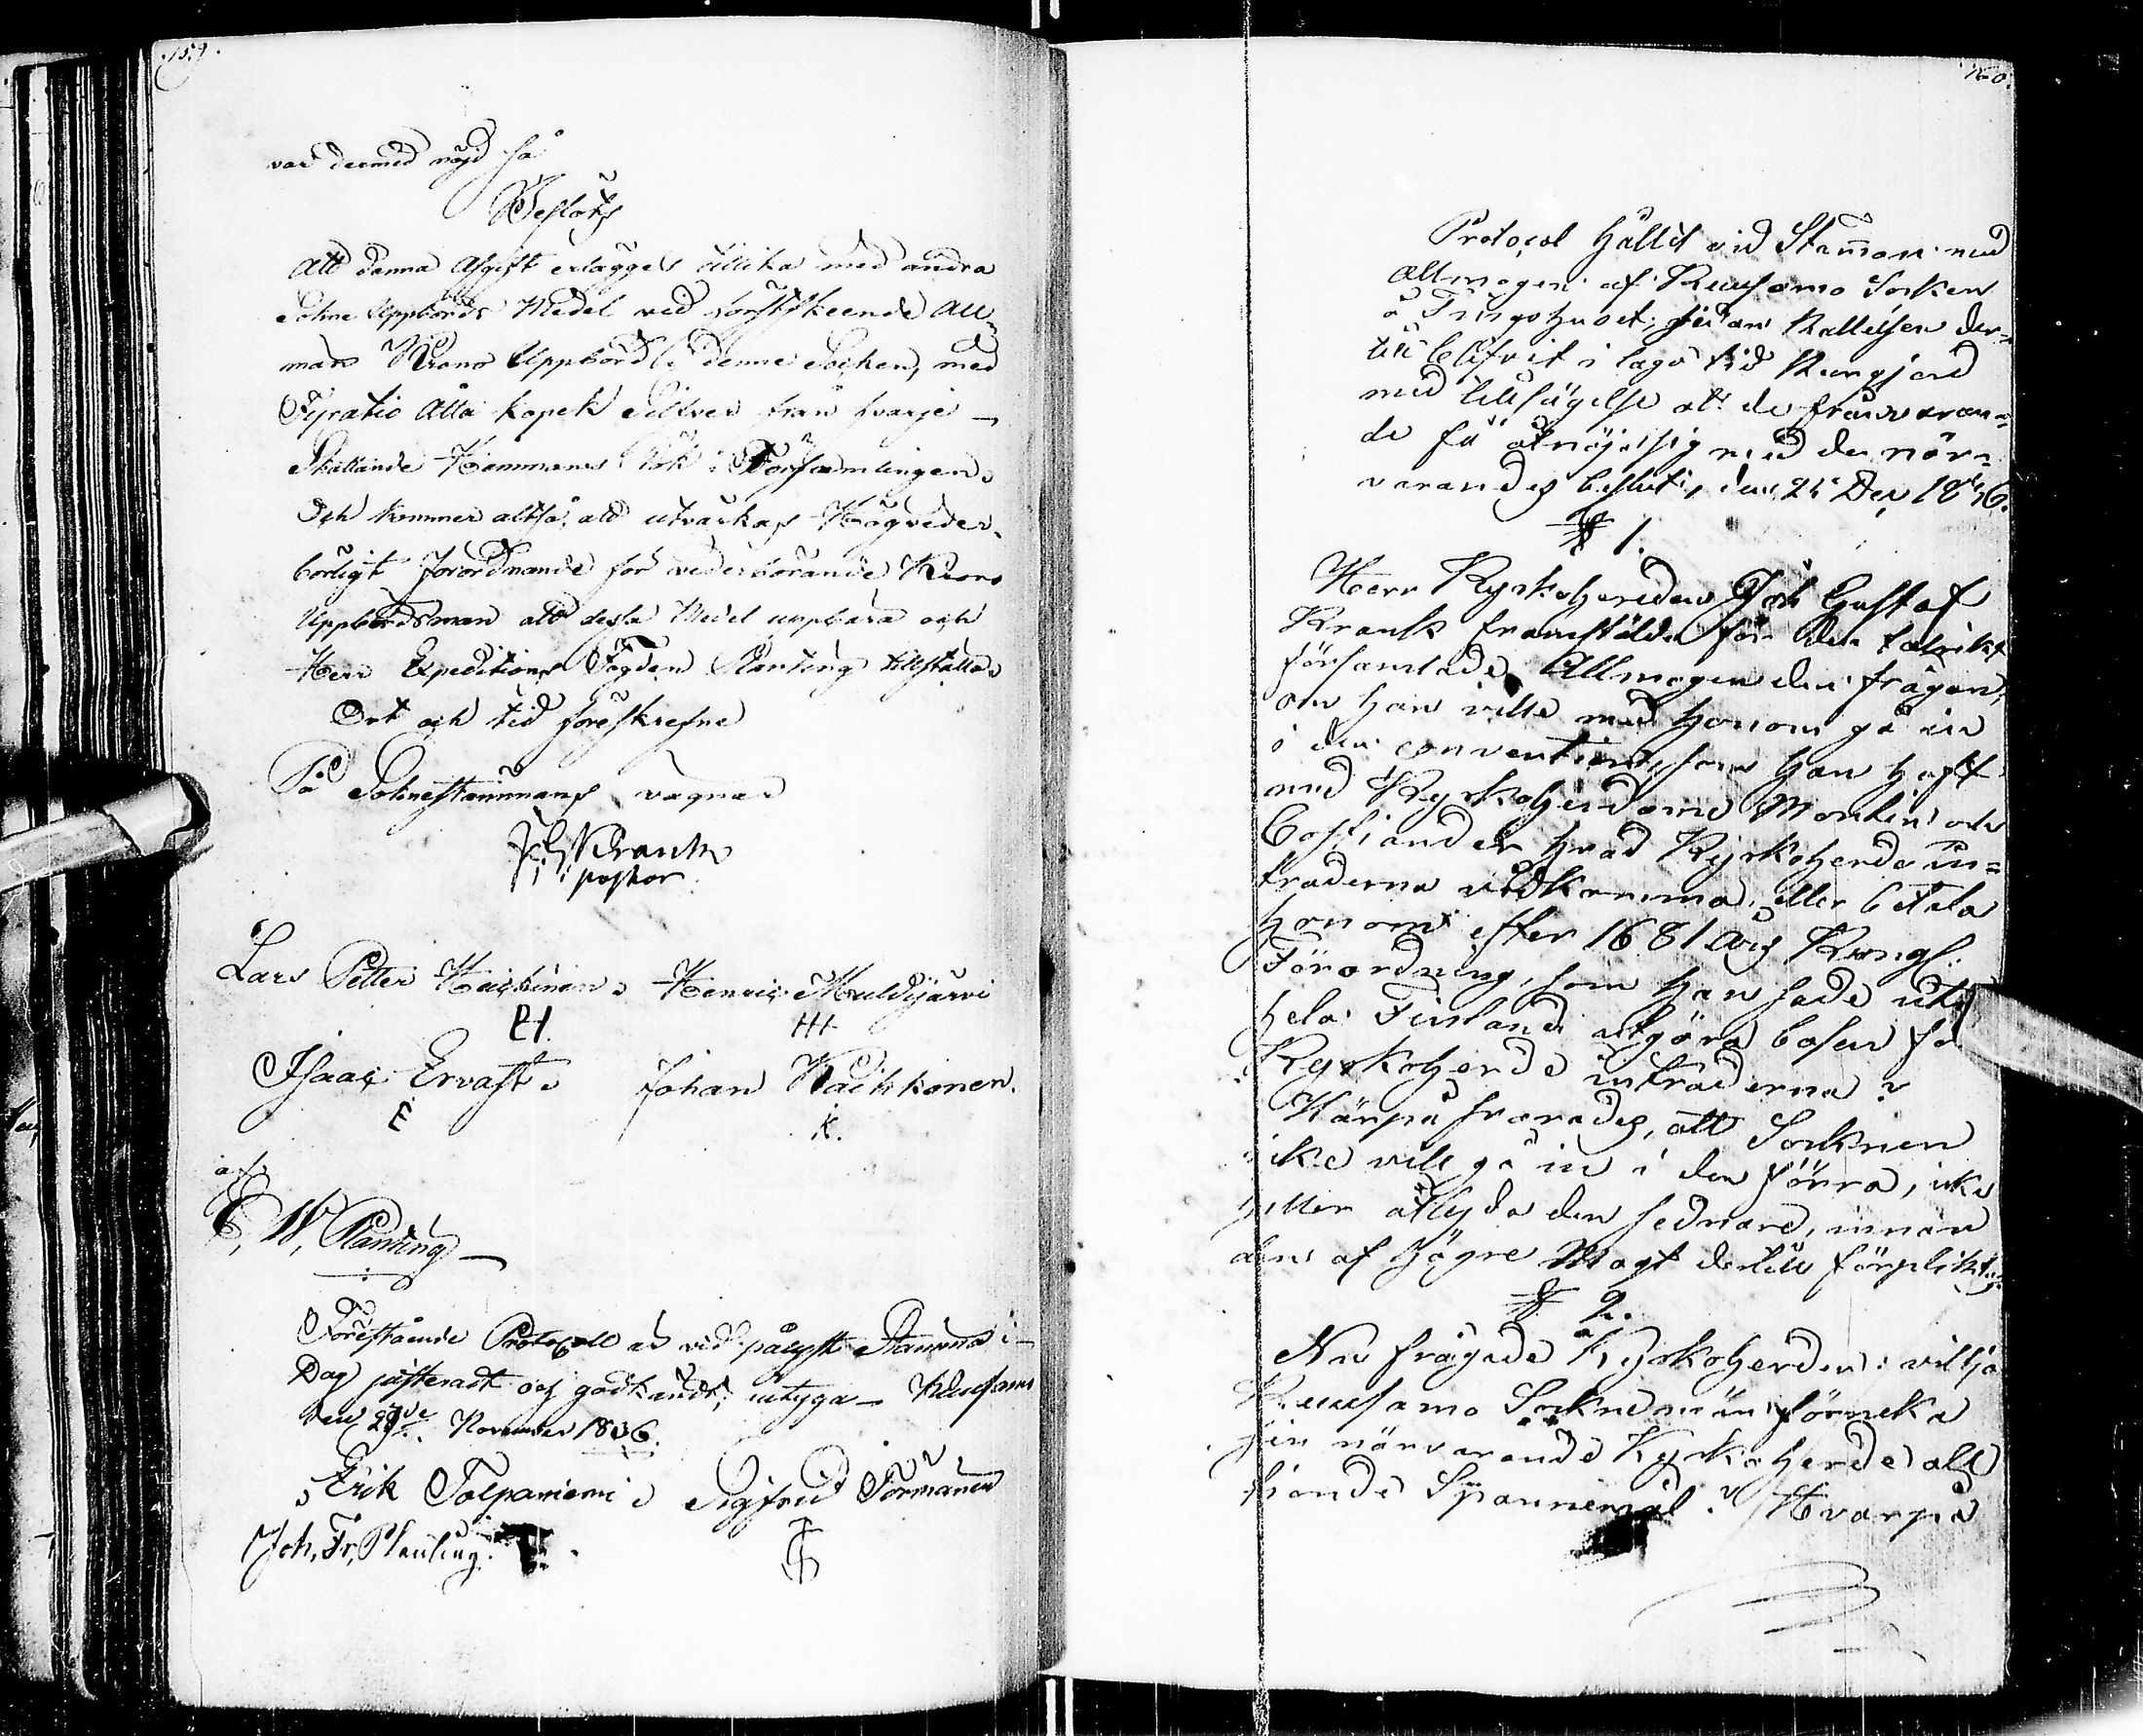 159.
var dermed nöjd så
Beslöts
Att denna Afgift erlägges tillika med andra
Sokne Uppbörds Medel vid förstskeende All-
män Krono Uppbörd i denne Socken, med
Fyratio Åtta kopek Silfver från hvarje
Skattande Hemmans Rök i Församlingen.
Och kommer altså, att utvärkas Högveder-
börligt förordnande för vederbörande Krono
Uppbördsman att dessa Medel uppbära och
Herr Expeditions Fogden Planting tillställa.
Ort och tid föreskrefne
På Soknestämmans vägnar
J. G. Kranck
pastor
Lars Petter Heikinen Henric Muldijärvi
LH. HH
Isaac Ervast Johan Kackkonen.
E K.
af
C. W. Planting
Förestående Protocoll är vid pålyst Stämma i
Dag justeradt och godkändt; intyga Kuusamo
den 27de November 1836.
Erik Tolpaniemi Sigfrid Törmänen
Joh. Fr. Planting.
160.
Protocol hållit vid Stämman med
Allmogen af Kuusamo Socken
å Tingshuset, sedan Kallelsen der-
till blifvit i laga tid kungjord
med tillsägelse att de frånvaran-
de få åtnöja sig med de när-
varandes beslut, den 26 Dec 1836.
§ 1.
Herr Kyrkoherden Joh Gustaf
Kranck framstälde för den talrikt
församlade Allmogen den frågan,
om han ville med honom gå in
i den convention, som han haft
med Kyrkoherdarne Montin och
Cossiander hvad Kyrkoherde in-
traderna vidkomma, eller betala
honom efter 1681 års Kungl.
Förordning, som han sade uti
hela Finland utgöra basen för
Kyrkoherde intraderna?
Härpå svarades, att Socknen
icke vill gå in i den förra, icke
heller åtlyda den sednare, innan
den af högre Magt dertill förpliktas
§ 2.
Nu frågade Kyrkoherden: vilja
Kuusamo Socknemän förneka
sin närvarande Kyrkoherde all
tionde Spannemål? Hvarpå